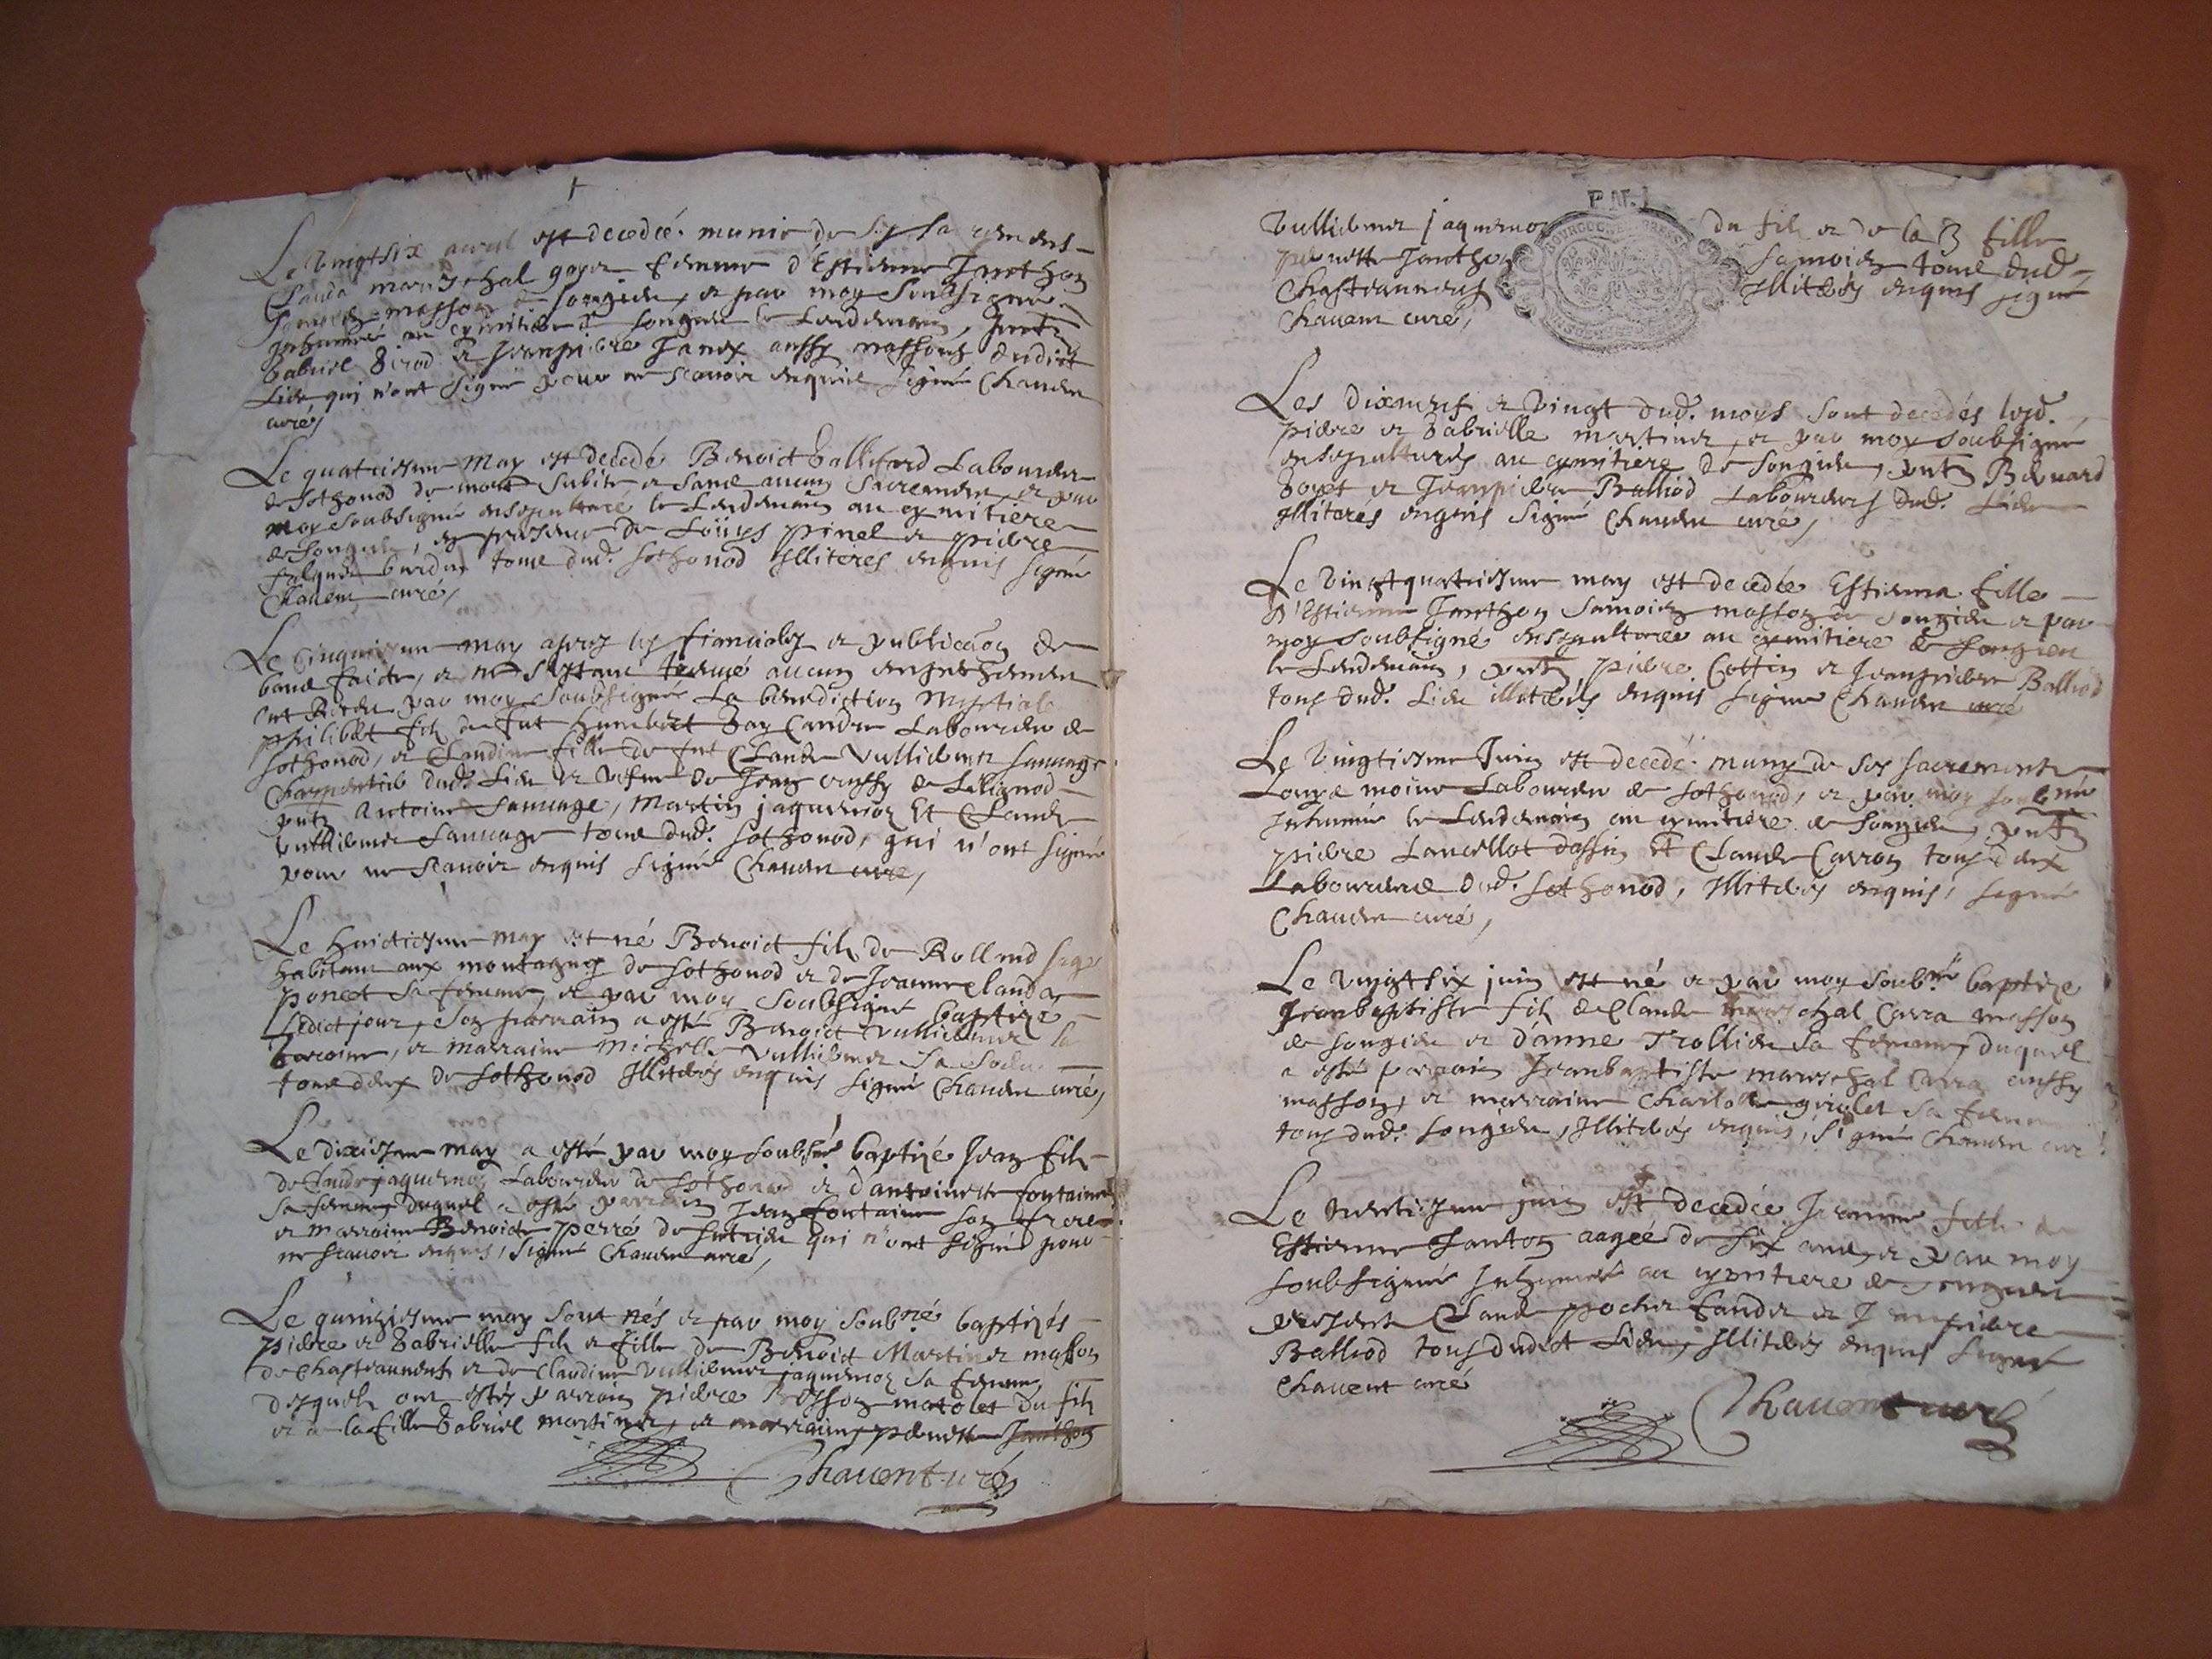 Le vingtsix avril est decedeé munie de ses sacremens
Clauda mareschal goyer femme d'Estienne Janthon
masson de songieu, et par moy soubsigné
inhumée au cymitiere de songieu le lendemain, pntz
Gabriel Girod et Jeanpierre Janex aussy massons dudict
lieu qui n'ont signé pour ne scavoir enquis signé Chavent
curé,
Le quatriesme May est decedé Benoict Gallifard Laboureur
de sothonod de mort subite et sans aucun sacrement, et par
moy soubsigné ensepulturé le lendemain au cymitiere
de songieu, en presence de Loüys pinel et pierre
tous dud. sothonod Illiteres enquis signé
Chavent curé,
Le cinquiesme may apres les fiancialles et publicaõn de
bans faicte, et ne s'estant treuvé aucun empeschement
ont receu par moy soubsigné La benediction Nuptiale
philibert fils de fut humbert Gay Laboureur de
sothonod, et Claudine fille de fut Claude Vulliemer sauvage
Charpentier dud. Lieu et vefve de Jean aussy de
pntz Antoine sauvage, Martin jaquemoz Et Claude
vulliemer sauvage tous dud. sothonod, qui n'ont signé
pour ne scavoir enquis signé Chavent curé,
Le huictiesme may est né Benoict fils de Rollend
habitant aux montagnes de sothonod et de Jeanne
poncet sa femme, et par moy soubsigné baptizé
Ledict jour, son parrain a esté Benoict vulliemer
et marraine Michelle vulliemer sa
tous deux de sothonod Illiteres enquis signé Chavent curé,
Le dixiesme may a esté par moy soubsné baptizé Jean fils
de Claude jaquemoz Laboureur de sothonod et d'antoinette fontaine
sa femme, duquel a esté parrain Jean fontaine son frere
et marraine Benoicte perré de qui n'ont signé pour
ne scavoir enquis, signé Chavent curé,
Le quinziesme may sont nés et par moy soubné baptizés
pierre et Gabrielle fils et fille de Benoict Martiner masson
de Chasteauneuf et de Claudine vulliemer jaquemoz sa femme,
desquels ont estés parrain pierre Besson matolet du fils
et de la fille Gabriel martiner, et marraines pernette Janthon
Chavent curé
vulliemer jaquemoz du fils et de la fille
pernette Janthon tous dud.
Chasteauneuf Illiteres enquis signé
Chavent curé,
Les dixneuf et vingt dud. moys sont decedés lesd.
pierre et Gabrielle martiner, et par moy soubsigné
ensepulturés au cymitiere de songieu, pntz Bernard
Goyet et Jeanpierre Balliod Laboureurs dud. Lieu
Illiteres enquis signé Chavent curé,
Le vingtquatriesme may est decedée Estienna fille
d'Estienne Janthon masson de songieu et par
moy soubsigné ensepulturée au cymitiere de songieu
le lendemain, pntz pierre Cottin et Jeanpierre Balliod
tous dud. Lieu illiteres enquis signé Chavent curé
Le vingtiesme Juin est decedé muny de ses sacrements
Loupe moine Laboureur de sothonod, et par moy soubné
Inhumé le lendemain au cymitiere de songieu, pntz
pierre Lancellot dassin et Claude Carron tous deux
Laboureurs dud. sothonod, Illiteres enquis, signé
Chavent curé,
Le vingtsix juin est né et par moy soubné baptizé
Jeanbaptiste fils de Claude mareschal Carra masson
de songieu et d'anne Trollieu sa femme, duquel
a esté parrain Jeanbaptiste mareschal Carra aussy
masson, et marraine Charlotte griolet sa femme
tous dud. songieu, Illiteres enquis, signé Chavent curé
Le trentiesme juin est decedée Jeanne fille de
Estienne Janton aagée de six ans, et par moy
soubsigné Inhumée au cymitiere de songieu
presents Claude pochet et Jeanpierre
Balliod tous dudict Lieu, Illiteres enquis signé
Chavent curé
Chavent curé